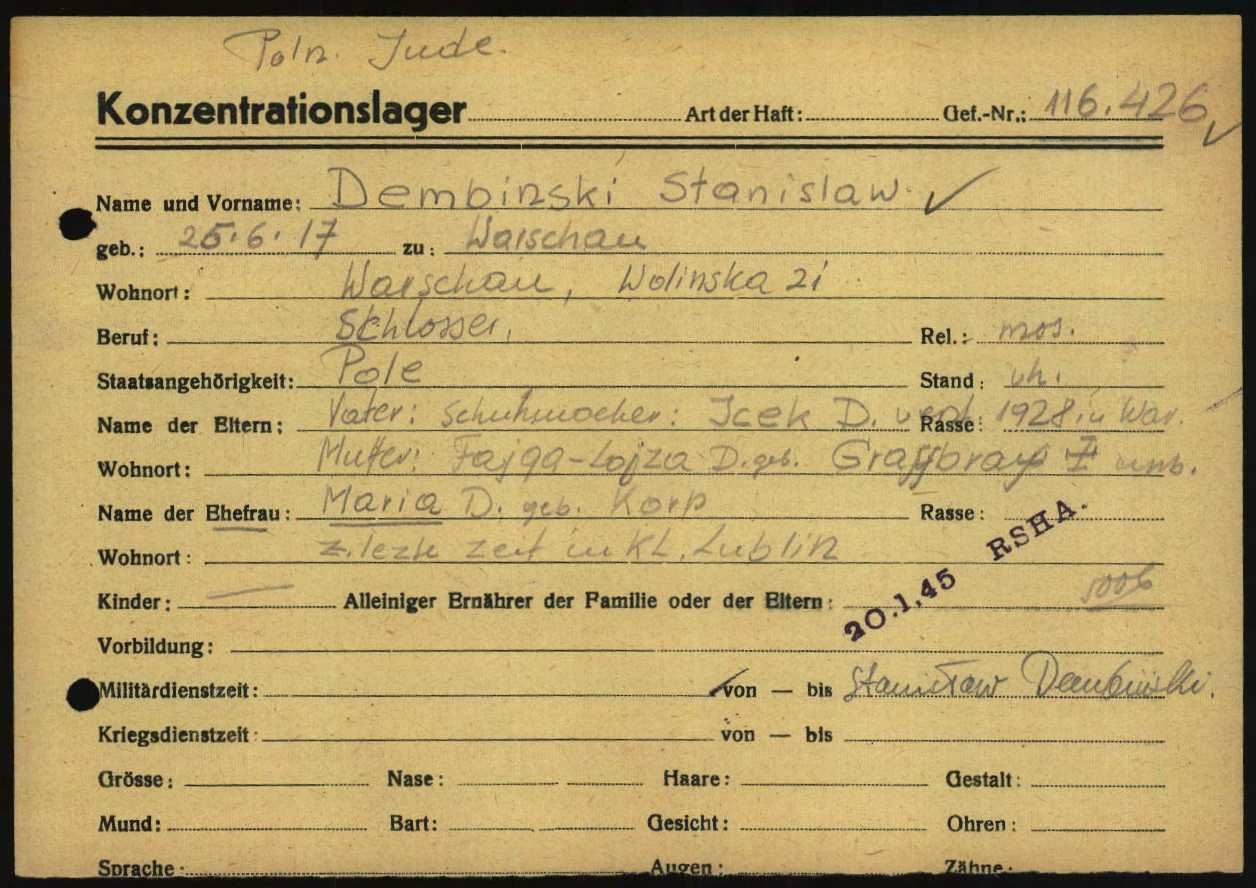 Poln. Jude.
Konzentrationslager Art der Haft: Gef.-Nr.: 116.426
Name und Vorname: Dembinski Stanislaw.
geb.: 25.6.17 zu: Warschau
Wohnort: Warschau, Wolinska 21
Beruf: Schlosser, Rel.: mos.
Staatsangehörigkeit: Pole Stand: vh.
Name der Eltern: Vater: Schuhmacher: Icek D. verst. Rasse: 1928 in War.
Wohnort: Mutter: Fajga-Lojza D. geb. unb.
Name der Ehefrau: Maria D. geb. Korp Rasse:
Wohnort: z. lezte Zeit in KL. Lublin
20.1.45 RSHA.
Kinder: — Alleiniger Ernährer der Familie oder der Eltern:
Vorbildung:
Militärdienstzeit: von — bis Stanisław Dembinski.
Kriegsdienstzeit: von — bis
Grösse: Nase: Haare: Gestalt:
Mund: Bart: Gesicht: Ohren:
Sprache: Augen: Zähne: